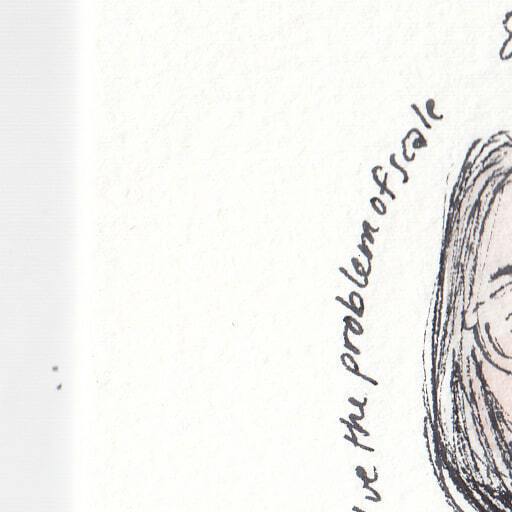 lve the problem of scale